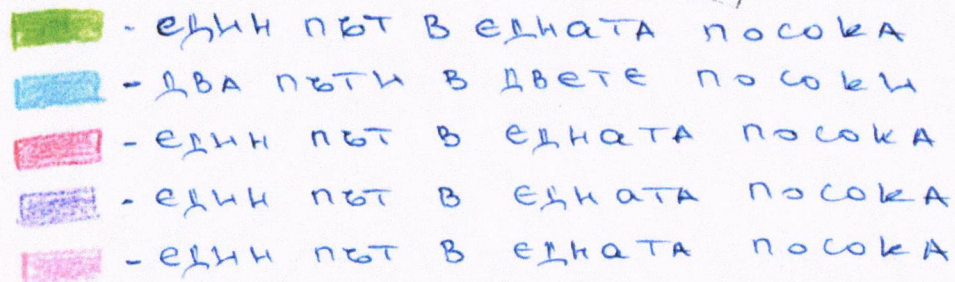 - един път в едната посока
- два пъти в двете посоки
- един път в едната посока
- един път в едната посока
- един път в едната посока